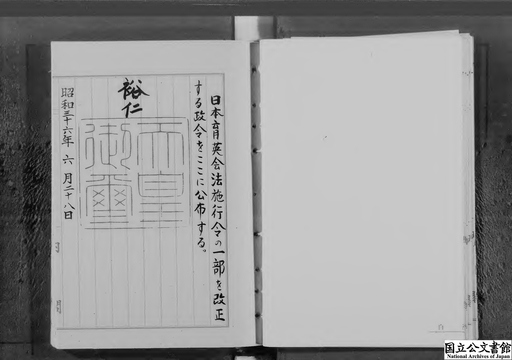 日本育英会法施行令の一部を改正
する政令をここに公布する。
裕仁
天皇
御璽
昭和三十六年六月二十八日
国立公文書館
National Archives of Japan